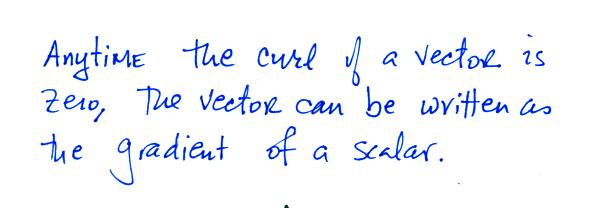 Anytime the curl of a vector is
zero, The vector can be written as
the gradient of a scalar.